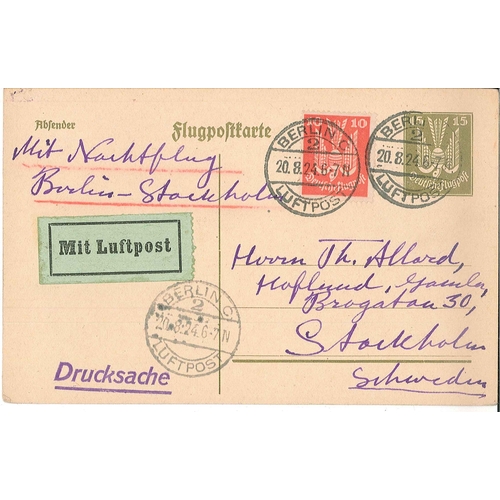 Absender
Flugpostkarte
10
Deutsche Flugpost
15
Deutsche Flugpost
BERLIN C
2
20.8.24.6-7N
LUFTPOST
BERLIN C
2
20.8.24.6-7N
LUFTPOST
Mit Nachtflug
Berlin-Stockholm
Mit Luftpost
Herrn Th. Allard,
Hoflund, Gamla
Brogatan 30,
Stockholm
Schweden
BERLIN C
2
20.8.24.6-7N
LUFTPOST
Drucksache